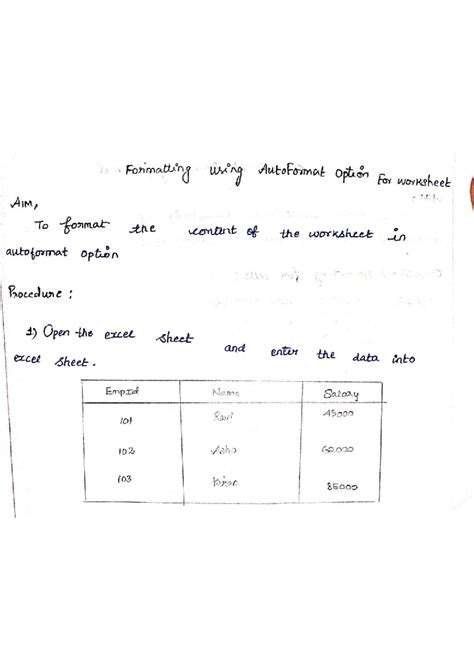 Formatting using AutoFormat Option For worksheet
AIM,
To format the content of the worksheet in
autoformat option
Procedure :
1) Open the excel sheet and enter the data into
excel sheet.
EmpId Name Salary
101 Ravi 45000
102 Asha 62000
103 Kiran 85000